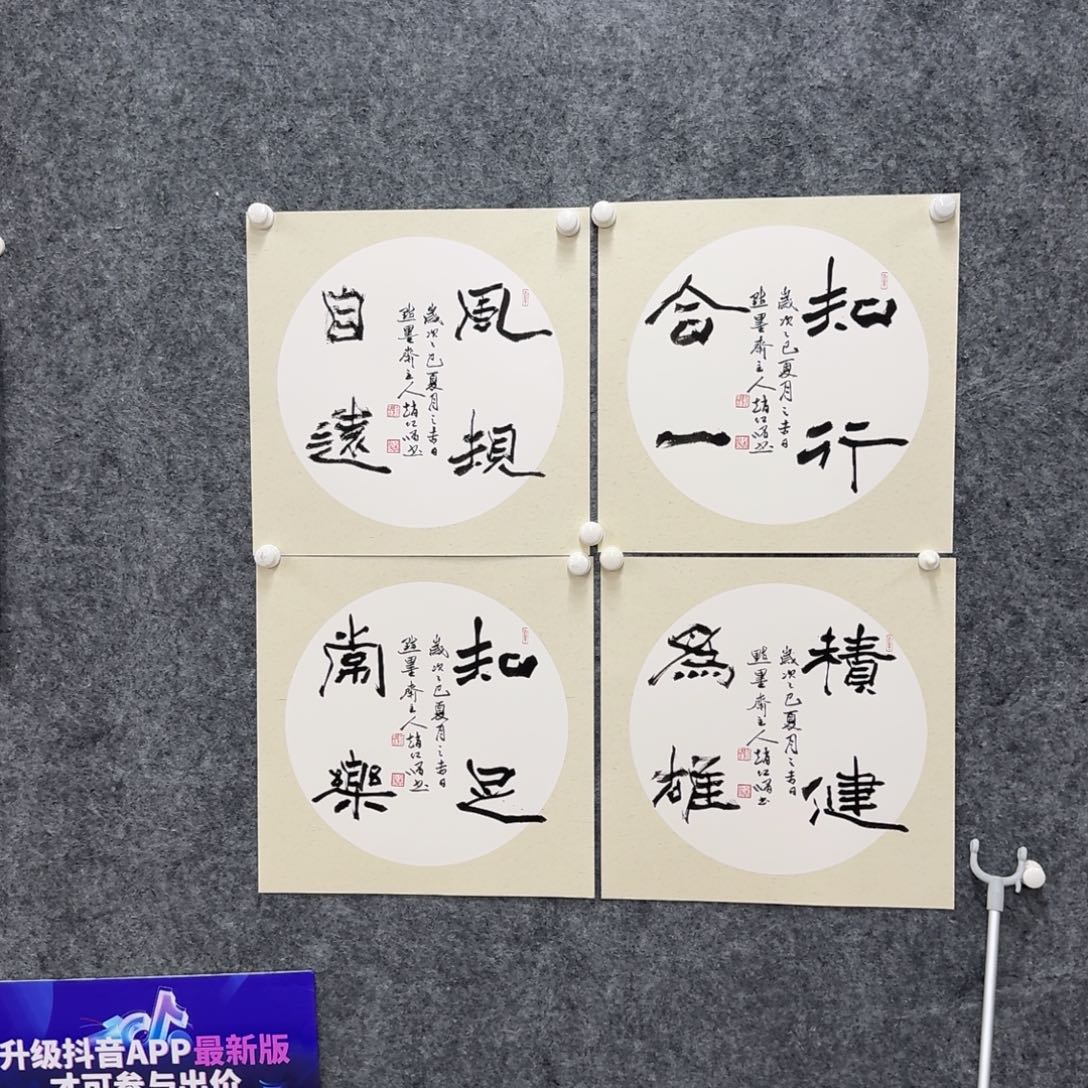 風規
歲次乙巳夏月之吉日
點墨齋主人趙
自遠
知行
歲次乙巳夏月之吉日
點墨齋主人趙
合一
知足
歲次乙巳夏月之吉日
點墨齋主人趙
常樂
積健
歲次乙巳夏月之吉日
點墨齋主人趙
為雄
升级抖音APP最新版
才可参与出价